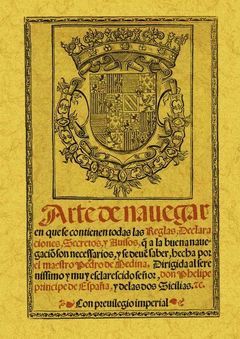 Arte de nauegar
en que se contienen todas las Reglas, Declara
ciones, Secretos, y Auisos, q̃ a la buena naue
gaciõ son necessarios, y se deuẽ saber, hecha por
el maestro Pedro de Medina. Dirigida al sere
nissimo y muy esclarescido señor, don Phelipe
principe de España, y de las dos Sicilias. ⁊c.
Con preuilegio imperial